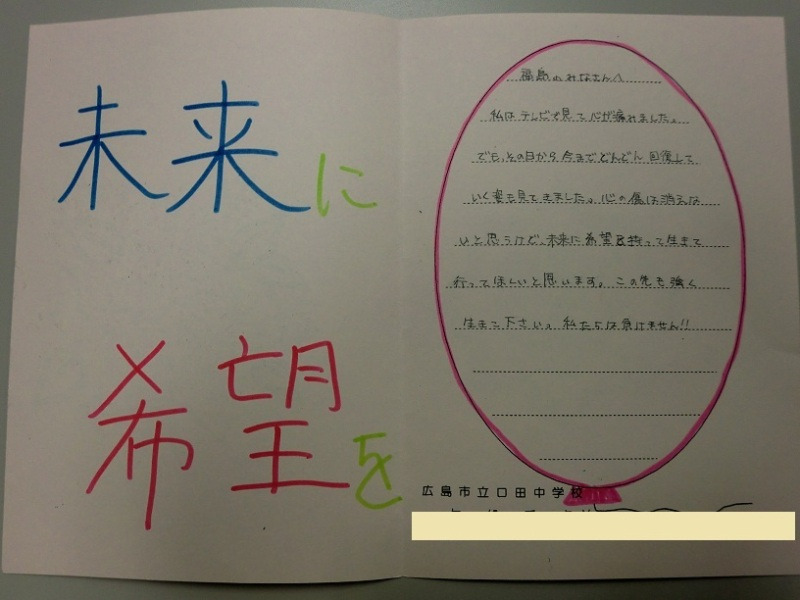 未来に
希望を
福島のみなさんへ
私はテレビで見て心が痛みました。
でも、その日から今までどんどん回復して
いく姿も見てきました。心の傷は消えな
いと思うけど、未来に希望を持って生きて
行ってほしいと思います。この先も強く
生きて下さい。私たちは負けません!!
広島市立口田中学校